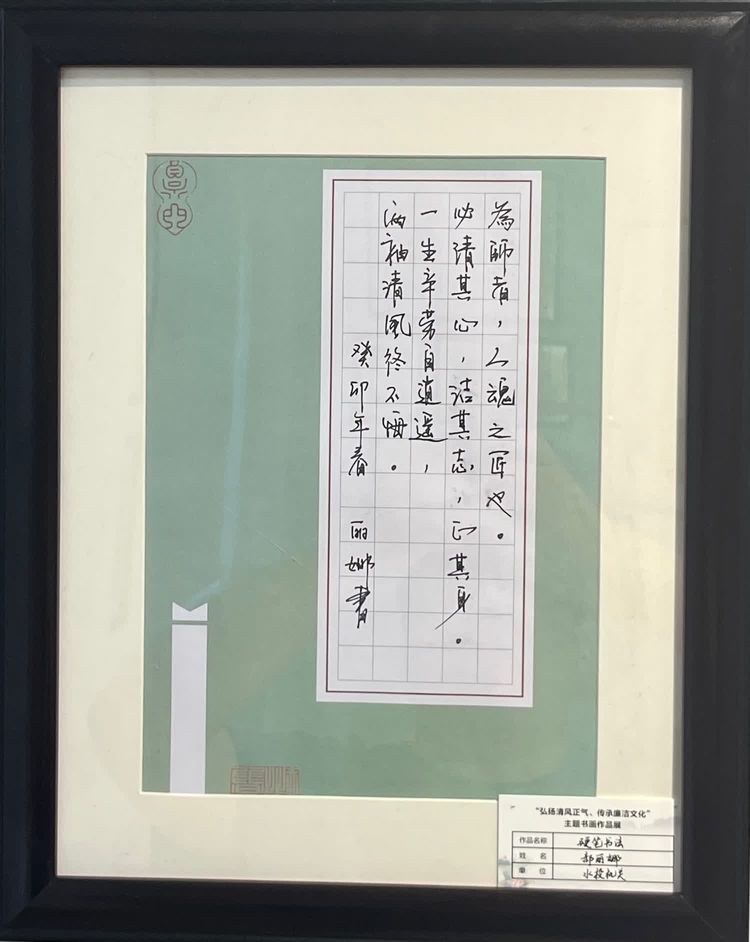 為師者，人魂之匠也。
必清其心，洁其志，正其身。
一生辛劳自逍遥，
满袖清风终不悔。
癸卯年春 丽娜書
"弘扬清风正气、传承廉洁文化"
主题书画作品展
作品名称 硬笔书法
姓名 郝丽娜
单位 水投机关